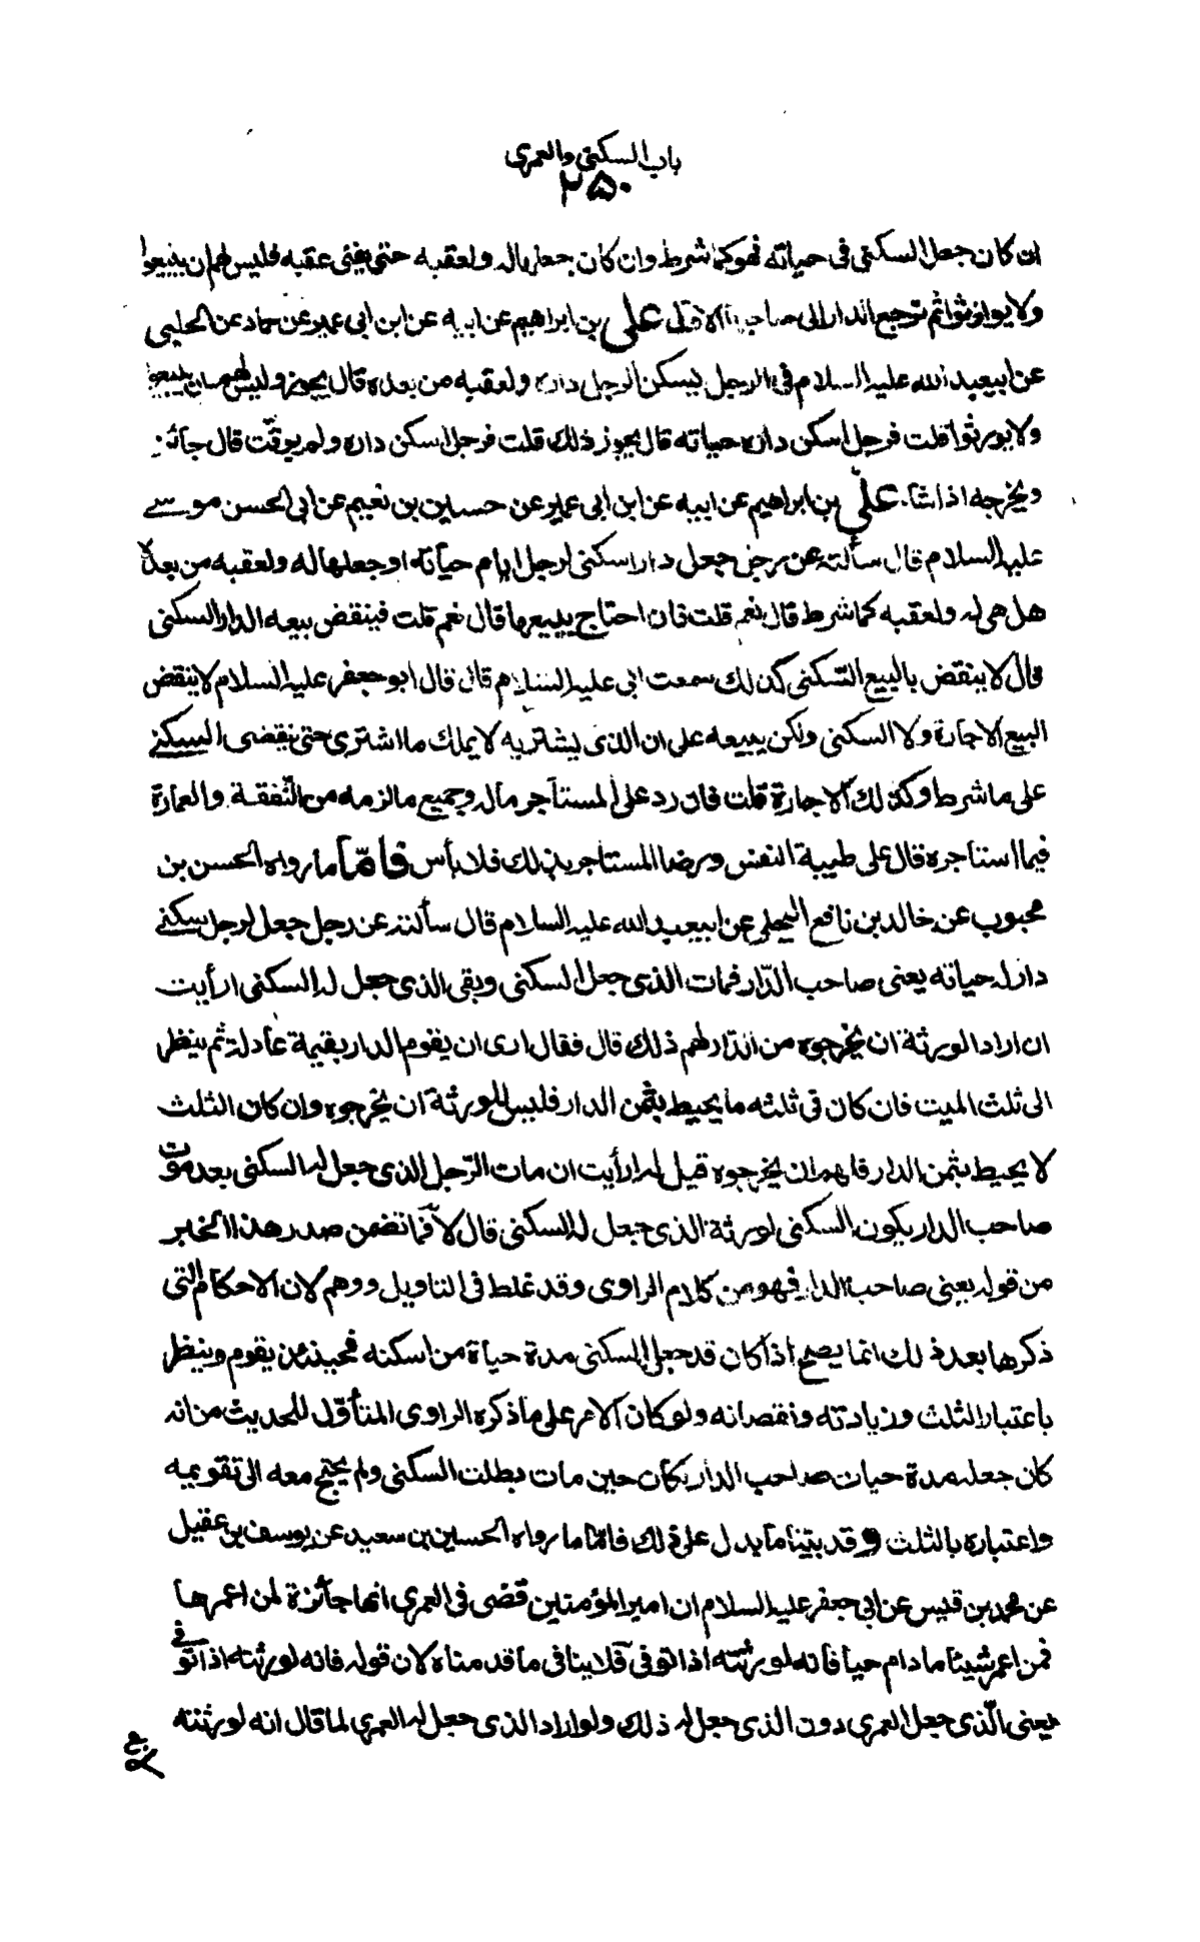 باب السكنى والعمرى
٢٥٠
ان كان جعل السكنى فى حياته فهو كما شرط وان كان جعلها له ولعقبه حتى يفنى عقبه فليس لهم ان يبيعوا
ولا يورثوا ثم ترجع الدار الى صاحبها الاول على بن ابراهيم عن ابيه عن ابن ابى عمير عن حماد عن الحلبى
عن ابيعبد الله عليه السلام فى الرجل يسكن الرجل داره ولعقبه من بعده قال يجوز وليس لهم ان يبيعوا
ولا يورثوا قلت فرجل اسكن داره حياته قال يجوز ذلك قلت فرجل اسكن داره ولم يوقت قال جائز
ويخرجه اذا شاء علىّ بن ابراهيم عن ابيه عن ابن ابى عمير عن حسين بن نعيم عن ابى الحسن موسى
عليه السلام قال سألته عن رجل جعل دارا سكنى لرجل ايام حياته او جعلها له ولعقبه من بعده
هل هى له ولعقبه كما شرط قال نعم قلت فان احتاج يبيعها قال نعم قلت فينقض بيعه الدار السكنى
قال لا ينقض بالبيع السّكنى كذلك سمعت ابى عليه السلام قال قال ابو جعفر عليه السلام لا ينقض
البيع الاجارة ولا السكنى ولكن يبيعه على ان الذى يشتريه لا يملك ما اشترى حتى ينقضى السكنى
على ما شرط وكذلك الاجارة قلت فان رد على المستأجر ماله وجميع مالزمه من النّفقة والعمارة
فيما استاجره قال على طيبة النفس ورضا المستاجر بذلك فلا بأس فامّا ما رواه الحسن بن
محبوب عن خالد بن نافع البجلى عن ابيعبد الله عليه السلام قال سألته عن رجل جعل لرجل سكنى
دار له حياته يعنى صاحب الدّار فمات الذى جعل السكنى وبقى الذى جعل له السكنى ارأيت
ان اراد الورثة ان يخرجوه من الدار لهم ذلك قال فقال ارى ان يقوم الدار بقيمة عادلة ثم ينظر
الى ثلث الميت فان كان فى ثلثه ما يحيط بثمن الدار فليس للورثة ان يخرجوه وان كان الثلث
لا يحيط بثمن الدار فلهم ان يخرجوه قيل له ارأيت ان مات الرّجل الذى جعل له السكنى بعد موت
صاحب الدار يكون السكنى لورثة الذى جعل له السكنى قال لا فما تضمن صدر هذا الخبر
من قوله يعنى صاحب الدار فهو من كلام الراوى وقد غلط فى التاويل ووهم لان الاحكام التى
ذكرها بعد ذلك انما يصح اذا كان قد جعل السكنى مدة حياة من اسكنه فحينئذ يقوم وينظر
باعتبار الثلث وزيادته ونقصانه ولو كان الامر على ما ذكره الراوى المتأوّل للحديث من انه
كان جعله مدة حيات صاحب الدار لكان حين مات بطلت السكنى ولم يحتج معه الى تقويمه
واعتباره بالثلث وقد بيّنا ما يدل على ذلك فامّا ما رواه الحسين بن سعيد عن يوسف بن عقيل
عن محمد بن قيس عن ابى جعفر عليه السلام ان امير المؤمنين قضى فى العمرى انها جائزة لمن اعمرها
فمن اعمر شيئا ما دام حيا فانه لورثته اذا توفى فلا ينافى ما قدمناه لان قوله فانه لورثته اذا توفى
يعنى الّذى جعل العمرى دون الذى جعل له ذلك ولو اراد الذى جعل له العمرى لما قال انه لورثته